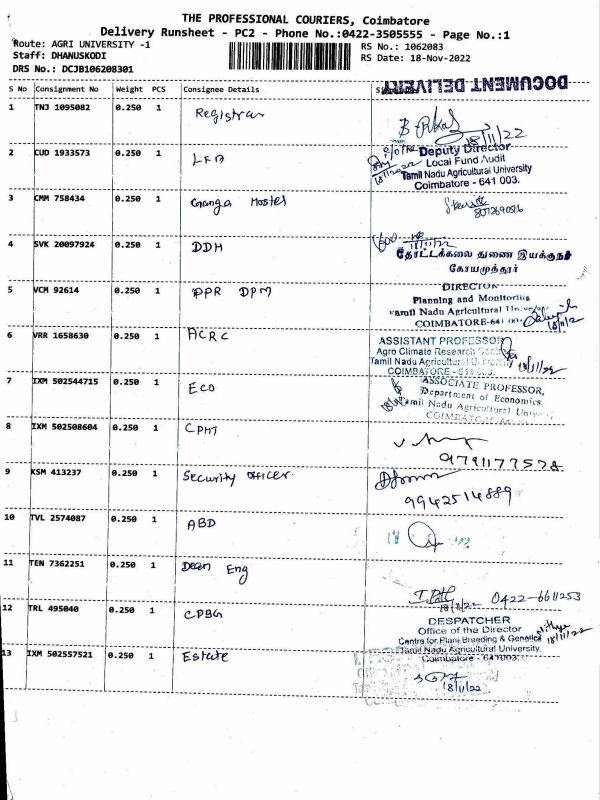 THE PROFESSIONAL COURIERS, Coimbatore
Delivery Runsheet - PC2 - Phone No.:0422-3505555 - Page No.:1
Route: AGRI UNIVERSITY -1
RS No.: 1062083
Staff: DHANUSKODI
RS Date: 18-Nov-2022
DRS No.: DCJB106208301
DOCUMENT DELIVERY
S No Consignment No Weight PCS Consignee Details
1 TNJ 1095082 0.250 1 Registrar
18/11/22
2 CUD 1933573 0.250 1 LFA
Deputy Director
Local Fund Audit
Tamil Nadu Agricultural University
Coimbatore - 641 003.
3 CMM 758434 0.250 1 Ganga Hostel
4 SVK 20097924 0.250 1 DDH
தோட்டக்கலை துணை இயக்குநர்
கோயமுத்தூர்
5 VCM 92614 0.250 1 PPR DPM
DIRECTOR
Planning and Monitoring
Tamil Nadu Agricultural
COIMBATORE-641
18/11/22
6 VRR 1658630 0.250 1 ACRC
ASSISTANT PROFESSOR
Agro Climate Research Centre
Tamil Nadu Agricultural University
COIMBATORE - 641 003.
18/11/22
7 IXM 502544715 0.250 1 ECO
ASSOCIATE PROFESSOR,
Department of Economics
Tamil Nadu Agricultural
8 IXM 502508604 0.250 1 CPHT
9791177578
9 KSM 413237 0.250 1 Security officer.
9942514889
10 TVL 2574087 0.250 1 ABD
11 TEN 7362251 0.250 1 Dean Eng
0422-6611253
18/11/22
12 TRL 495040 0.250 1 CPBG
DESPATCHER
Office of the Director
Centre for Plant Breeding & Genetics
Tamil Nadu Agricultural University,
Coimbatore - 641003.
18/11/22
13 IXM 502557521 0.250 1 Estate
18/11/22